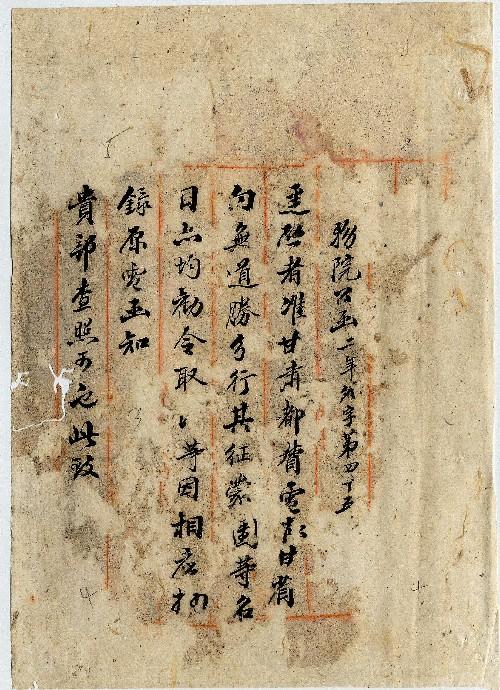 務院公函二年外字第四十五
逕啟者准甘肅都督電稱甘省
向無道勝分行其征蒙團等名
目亦均勒令取消等因相應抄
錄原電函知
貴部查照可也此致